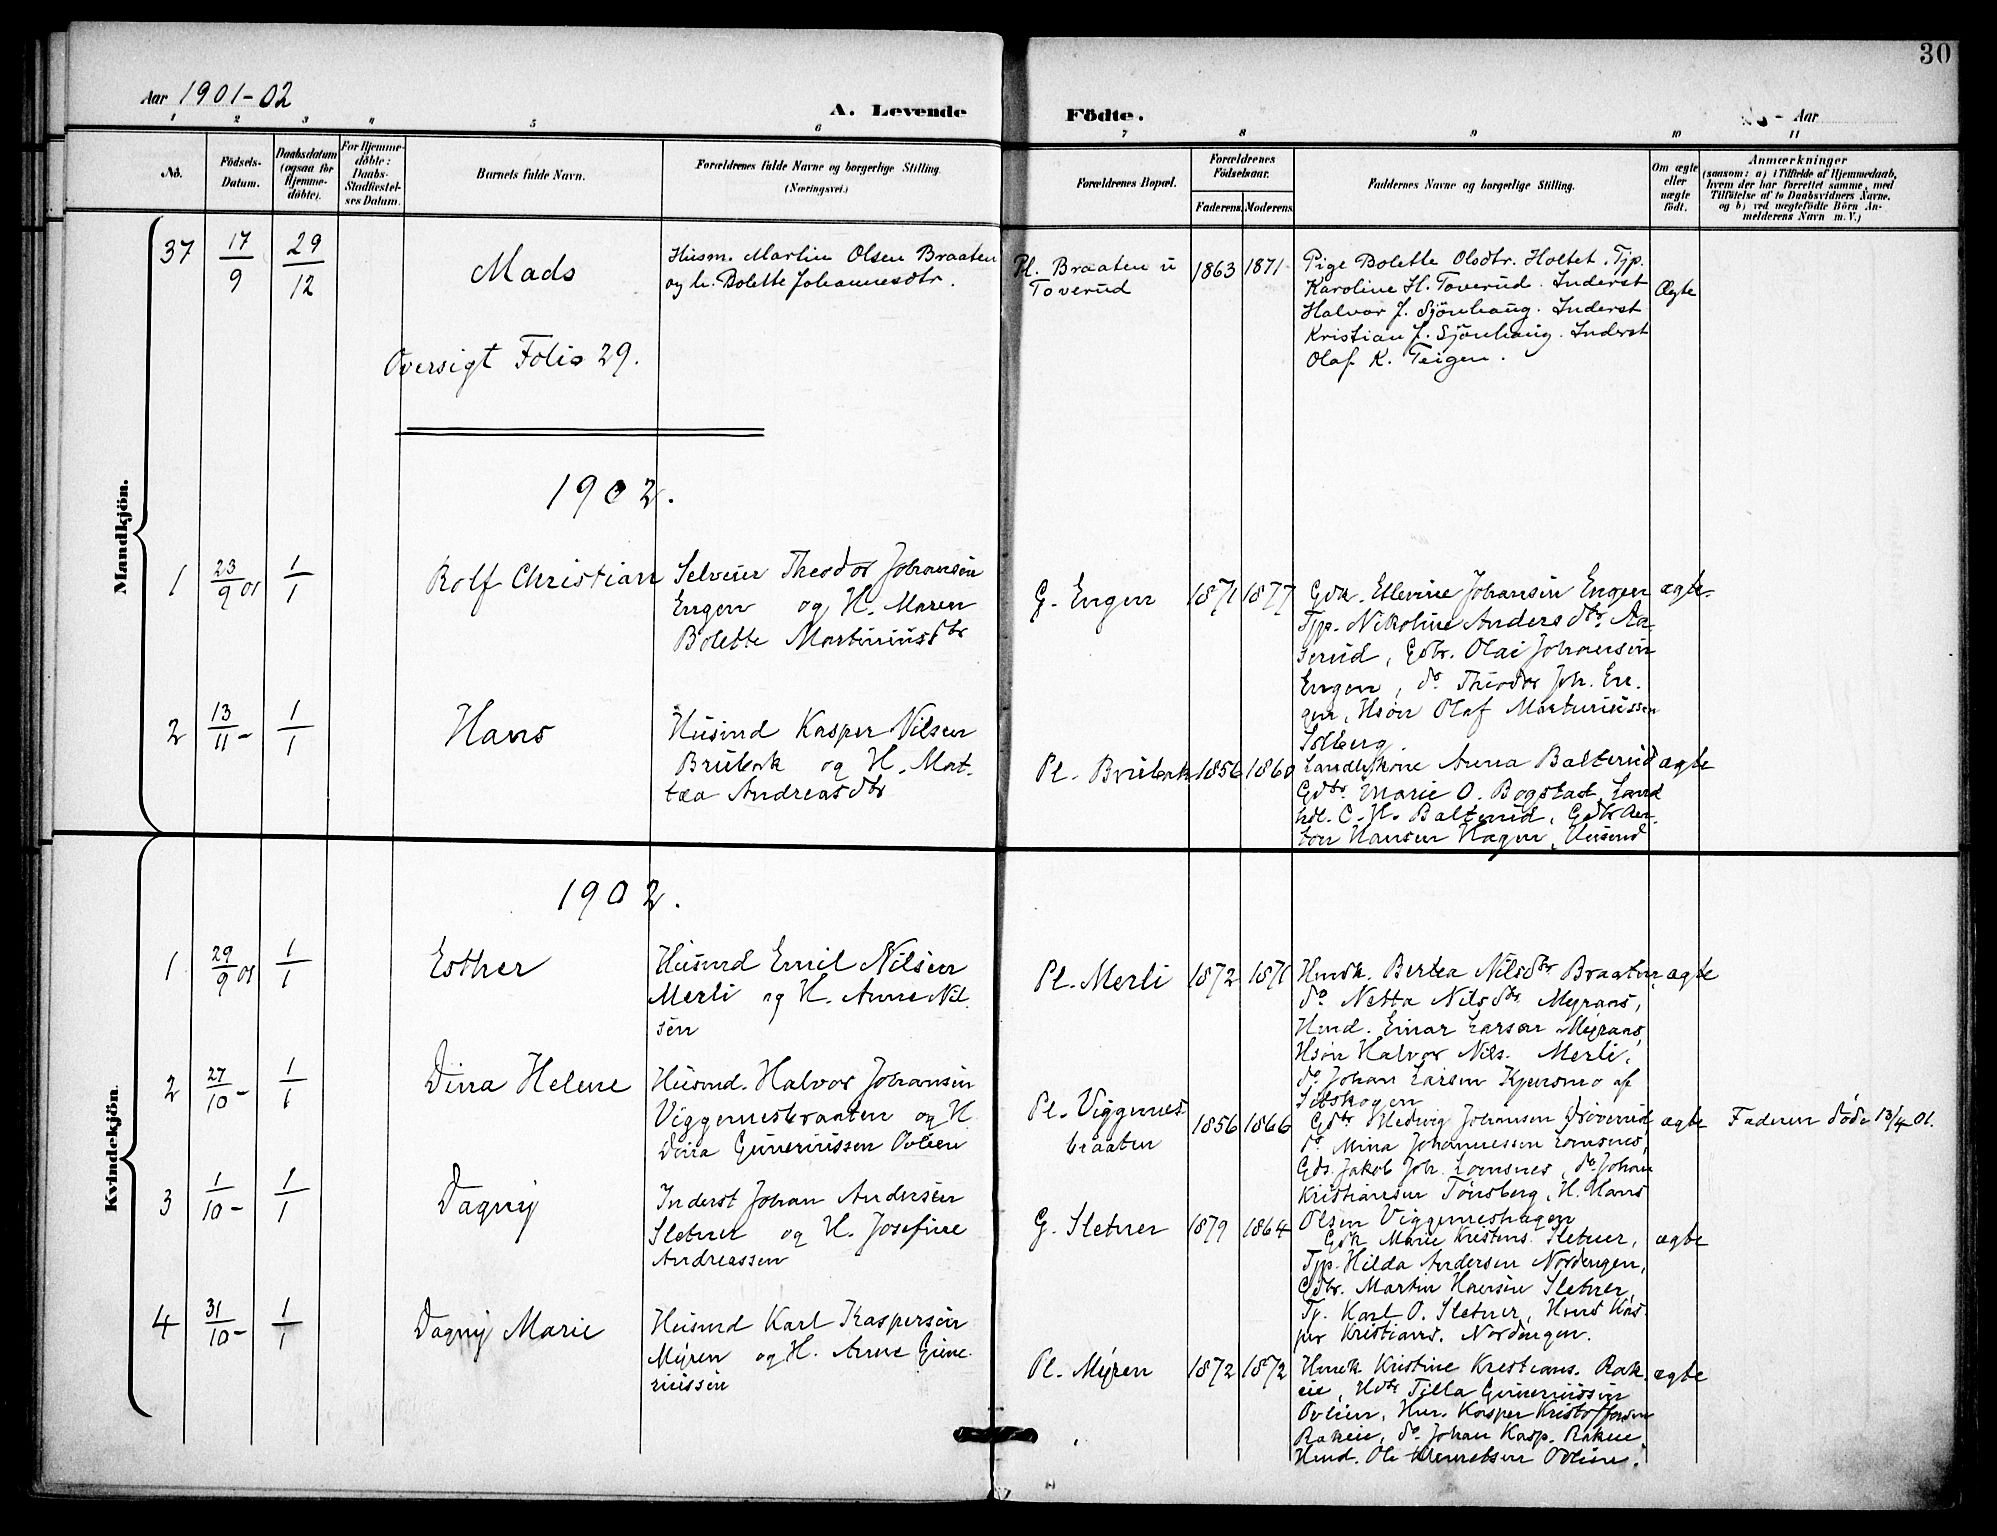 30
Aar 1901-02
A. Levende Födte.
Aar
1 2 3 4 5 6 7 8 9 10 11
No.
Födsels-
Datum.
Daabsdatum
(ogsaa for
Hjemme-
döbte).
For Hjemme-
döbte:
Daabs-
Stadfæstel-
ses Datum.
Barnets fulde Navn.
Forældrenes fulde Navne og borgerlige Stilling
(Næringsvei.)
Forældrenes Bopæl.
Forældrenes
Födselsaar.
Faderens. Moderens.
Faddernes Navne og borgerlige Stilling.
Om ægte
eller
uægte
födt.
Anmærkninger
(saasom: a) i Tilfælde af Hjemmedaab,
hvem der har forrettet samme, med
Tilföielse af to Daabsvidners Navne,
og b) ved uægtefödte Börn An-
melderens Navn m. V.)
Mandkjön.
37
17/9
29/12
Mads
Husm. Martin Olsen Braaten
og h. Bolette Johannesdtr.
Pl. Braaten u
Toverud
1863
1871
Pige Bolette Olsdtr. Holtet. Tjp.
Karoline H. Toverud. Inderst
Halvor J. Sjönhaug. Inderst
Kristian J. Sjönhaug. Inderst
Olaf K. Teigen.
Ægte
Oversigt Folio 29.
1902.
1
23/9 01
1/1
Rolf Christian
Selveier Theodor Johansen
Engen og H. Maren
Bolette Martiniusdtr
G. Engen
1871
1877
Gdk. Ellevine Johansen Engen
Tjp. Nikoline Andersdtr. Aa-
serud, Gdbr. Olai Johansen
Engen, do. Theodor Joh. En-
gen, Hsøn Olaf Martiniussen
Solberg.
ægte
2
13/11 -
1/1
Hans
Husmd Kasper Nilsen
Brubak og H. Mat-
tea Andreasdtr
Pl. Brubak
1856
1860
Landhkone Anna Balterud
Gdtr Marie O. Bogstad, Land
hdl. C. H. Balterud, Gdbr An-
ton Hansen Hagen, Husmd
ægte
Kvindekjön
1902.
1
29/9 01
1/1
Esther
Husmd Emil Nilsen
Merli og H. Anne Nil-
sen
Pl. Merli
1872
1871
Hmdk. Bertea Nilsdtr Braaten,
do Netta Nilsdtr. Myraas,
Hmd. Einar Larsen Myraas,
Hsøn Halvor Nils. Merli,
do. Johan Larsen Kjensmo af
ægte
2
27/10 -
1/1
Dina Helene
Husmd. Halvor Johansen
Viggenesbraaten og H.
Dina Guneriussen Ovleen
Pl. Viggenes
braaten
1856
1866
Gdtr Hedvig Johansen
do. Mina Johannessen Lomsnes,
Gds. Jakob Joh. Lomsnes, do. Johan
Kristiansen Tønsberg, H. Hans
Olsen Viggeneshagen
ægte
Faderen döde 13/4 01.
3
1/10 -
1/1
Dagny
Inderst Johan Andersen
Sletner og H. Josefine
Andreassen
G. Sletner
1879
1864
Gdk Marie Kristens. Sletner,
Tjp. Hilda Andersen Nordengen,
Gdbr. Martin Hansen Sletner,
Tj. Karl O. Sletner, Hmd Kas-
per Kristians. Nordengen.
ægte
4
31/10 -
1/1
Dagny Marie
Husmd Karl Kaspersen
Myren og H. Anne Gune-
riussen
Pl. Myren
1872
1872
Hmdk Kristine Kristians. Rak-
eie, Hdtr Tilla Guneriussen
Ovleien, Hm. Kasper Kristoffersen
Rakeie, do. Johan Kasp. Rakeie
Hmd. Ole Ovleien.
ægte